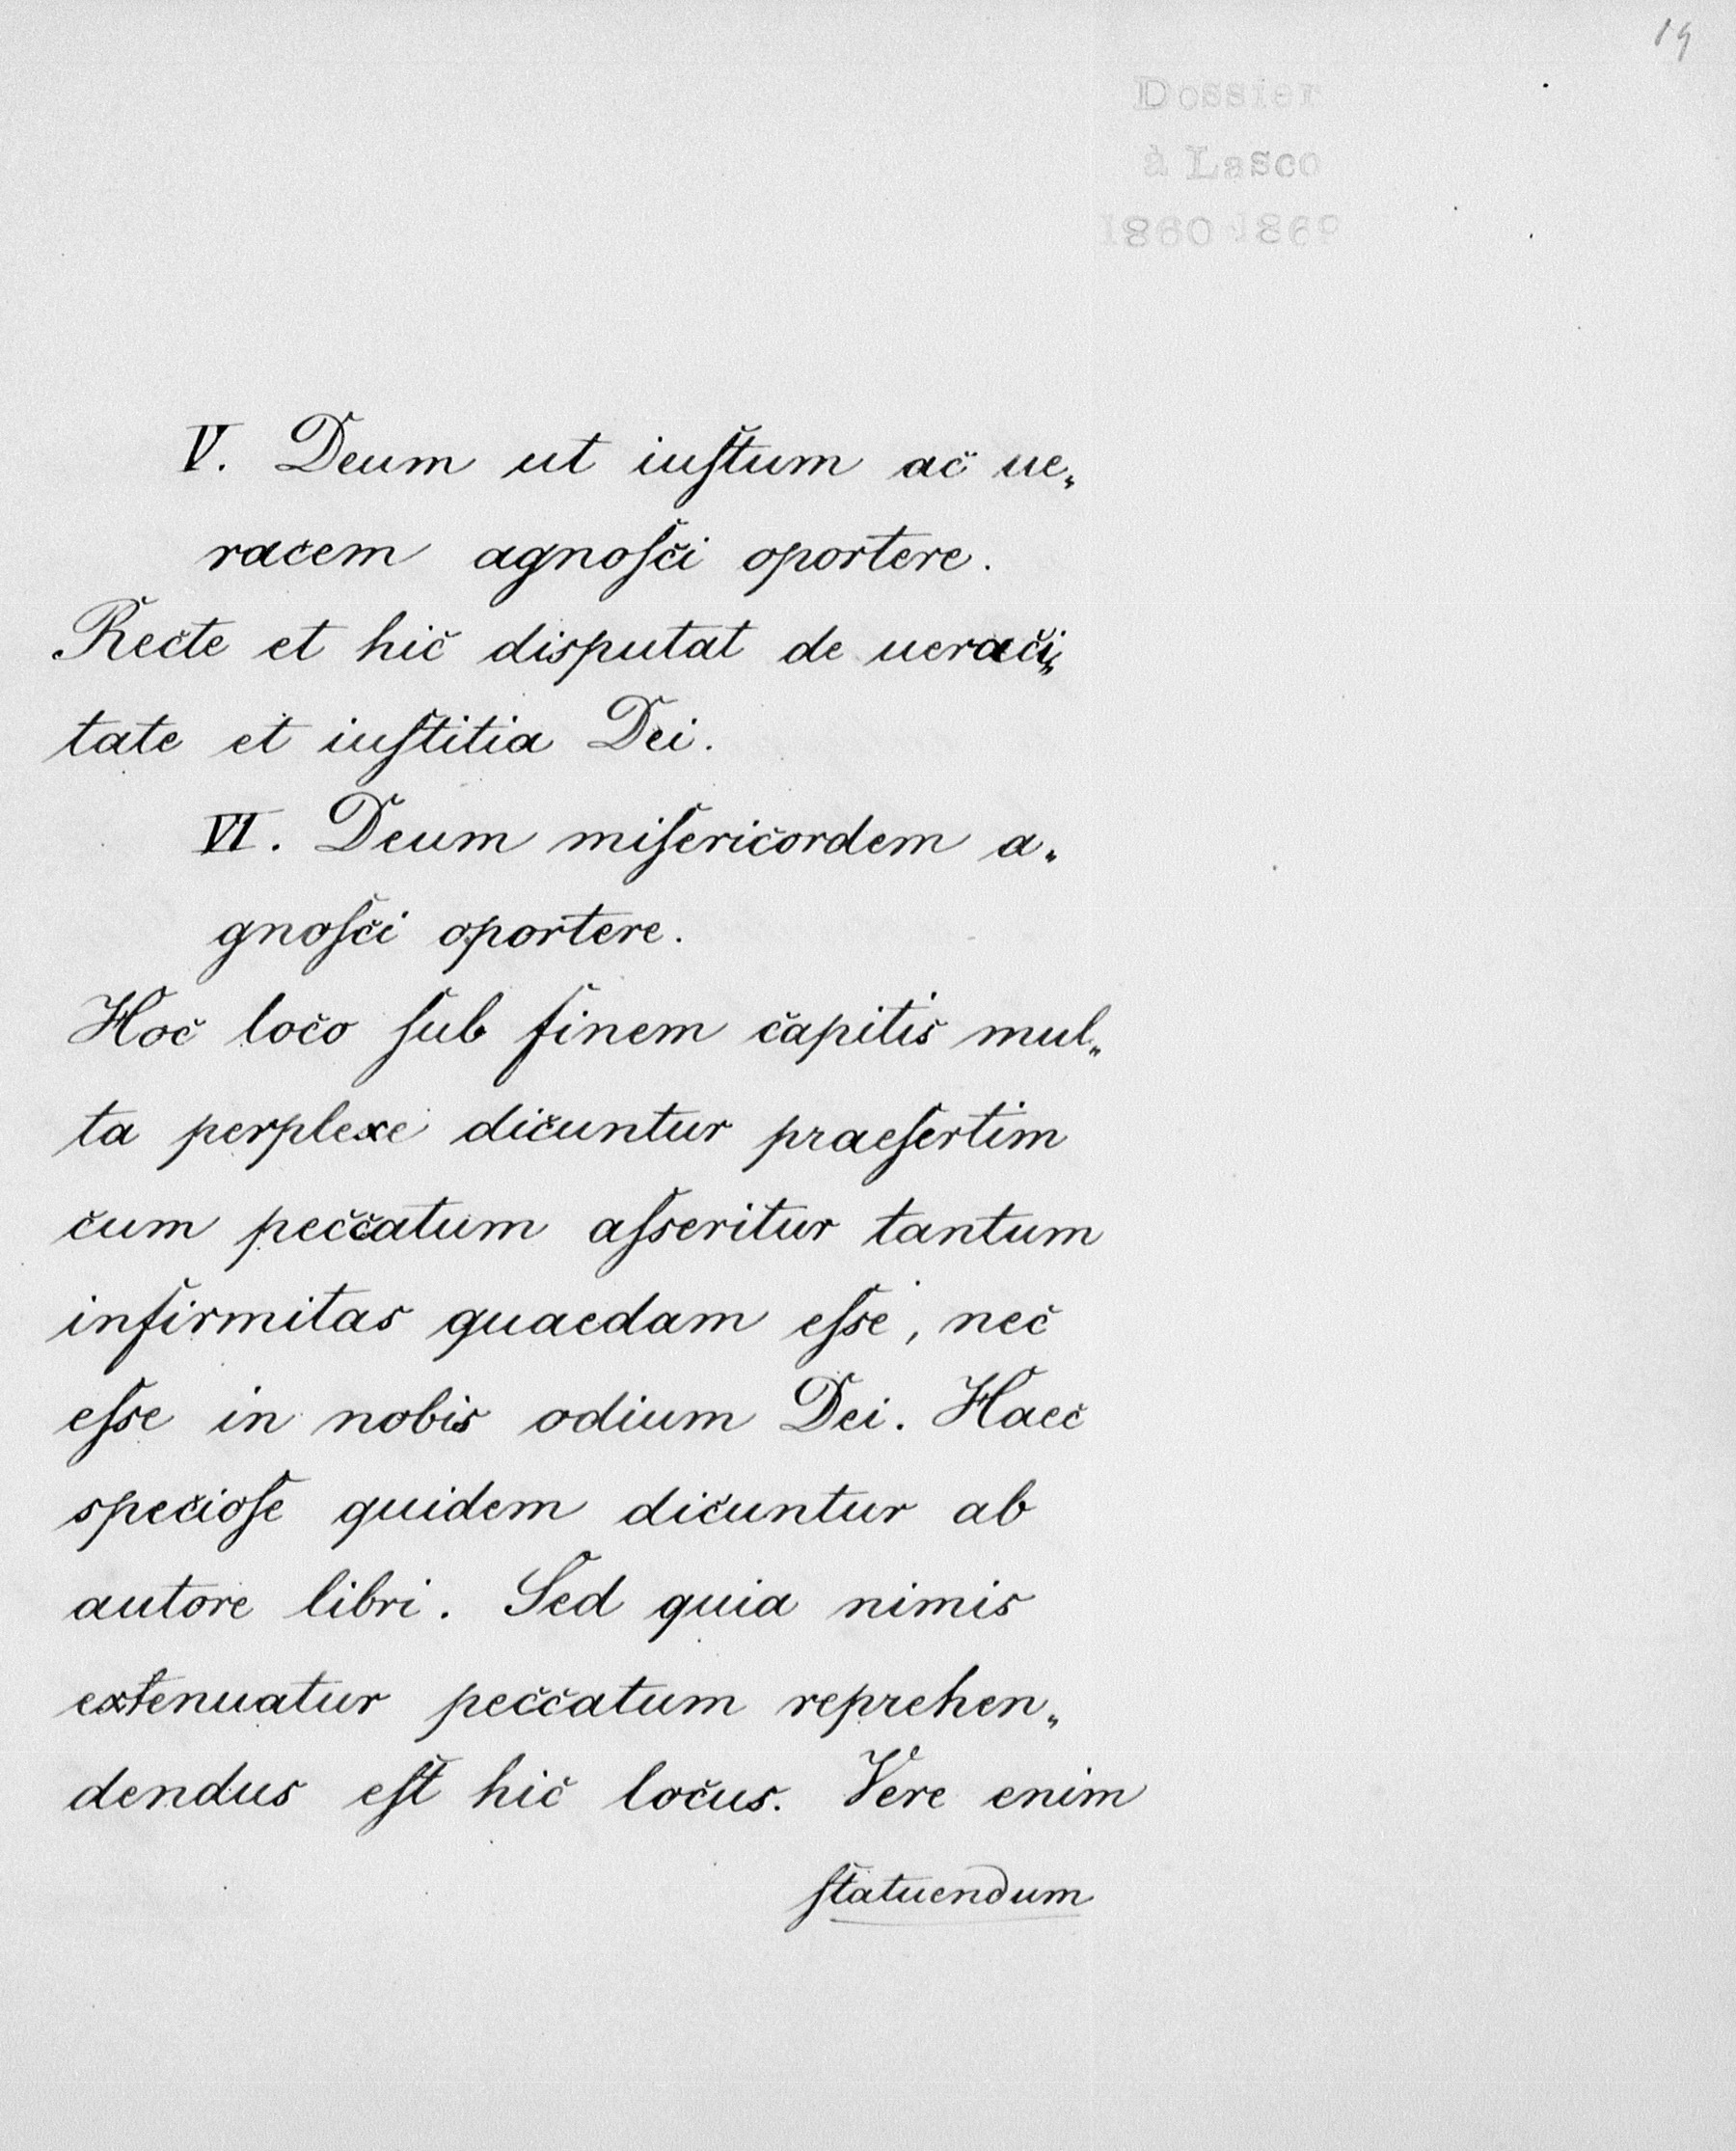 19
Dossier
à Lasco
1860-1869
V. Deum ut iuſtum ac ue„
racem agnoſci oportere.
Recte et hic disputat de ueraci„
tate et iuſtitia Dei.
VI. Deum miſericordem a„
gnoſci oportere.
Hoc loco ſub finem capitis mul„
ta perplexe dicuntur praeſertim
cum peccatum aſseritur tantum
infirmitas quaedam eſse, nec
eſse in nobis odium Dei. Haec
specioſe quidem dicuntur ab
autore libri. Sed quia nimis
extenuatur peccatum reprehen„
dendus eſt hic locus. Vere enim
ſtatuendum